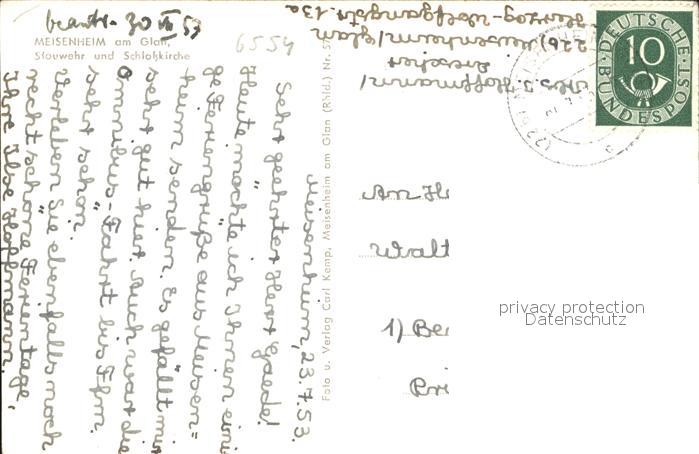 beantr. 30 VII 53
MEISENHEIM am Glan,
Stauwehr und Schloßkirche
6554
Meisenheim, 23.7.53.
Sehr geehrter Herr Gaede!
Heute möchte ich Ihnen eini=
ge Feriengrüße aus Meisen=
heim senden. Es gefällt mir
sehr gut hier. Auch war die
Omnibus-Fahrt bis Ffm.
sehr schön.
Verleben Sie ebenfalls noch
recht schöne Ferientage.
Ihre Ilse Hoffmann.
Foto u. Verlag Carl Kemp, Meisenheim am Glan (Rhld.) Nr. 57
Hoffmann/
(22b) Meisenheim/Glan
Herzog-Wolfgangstr. 13a
DEUTSCHE
BUNDESPOST
10
An H
Walt
1) Be
Pri
privacy protection
Datenschutz